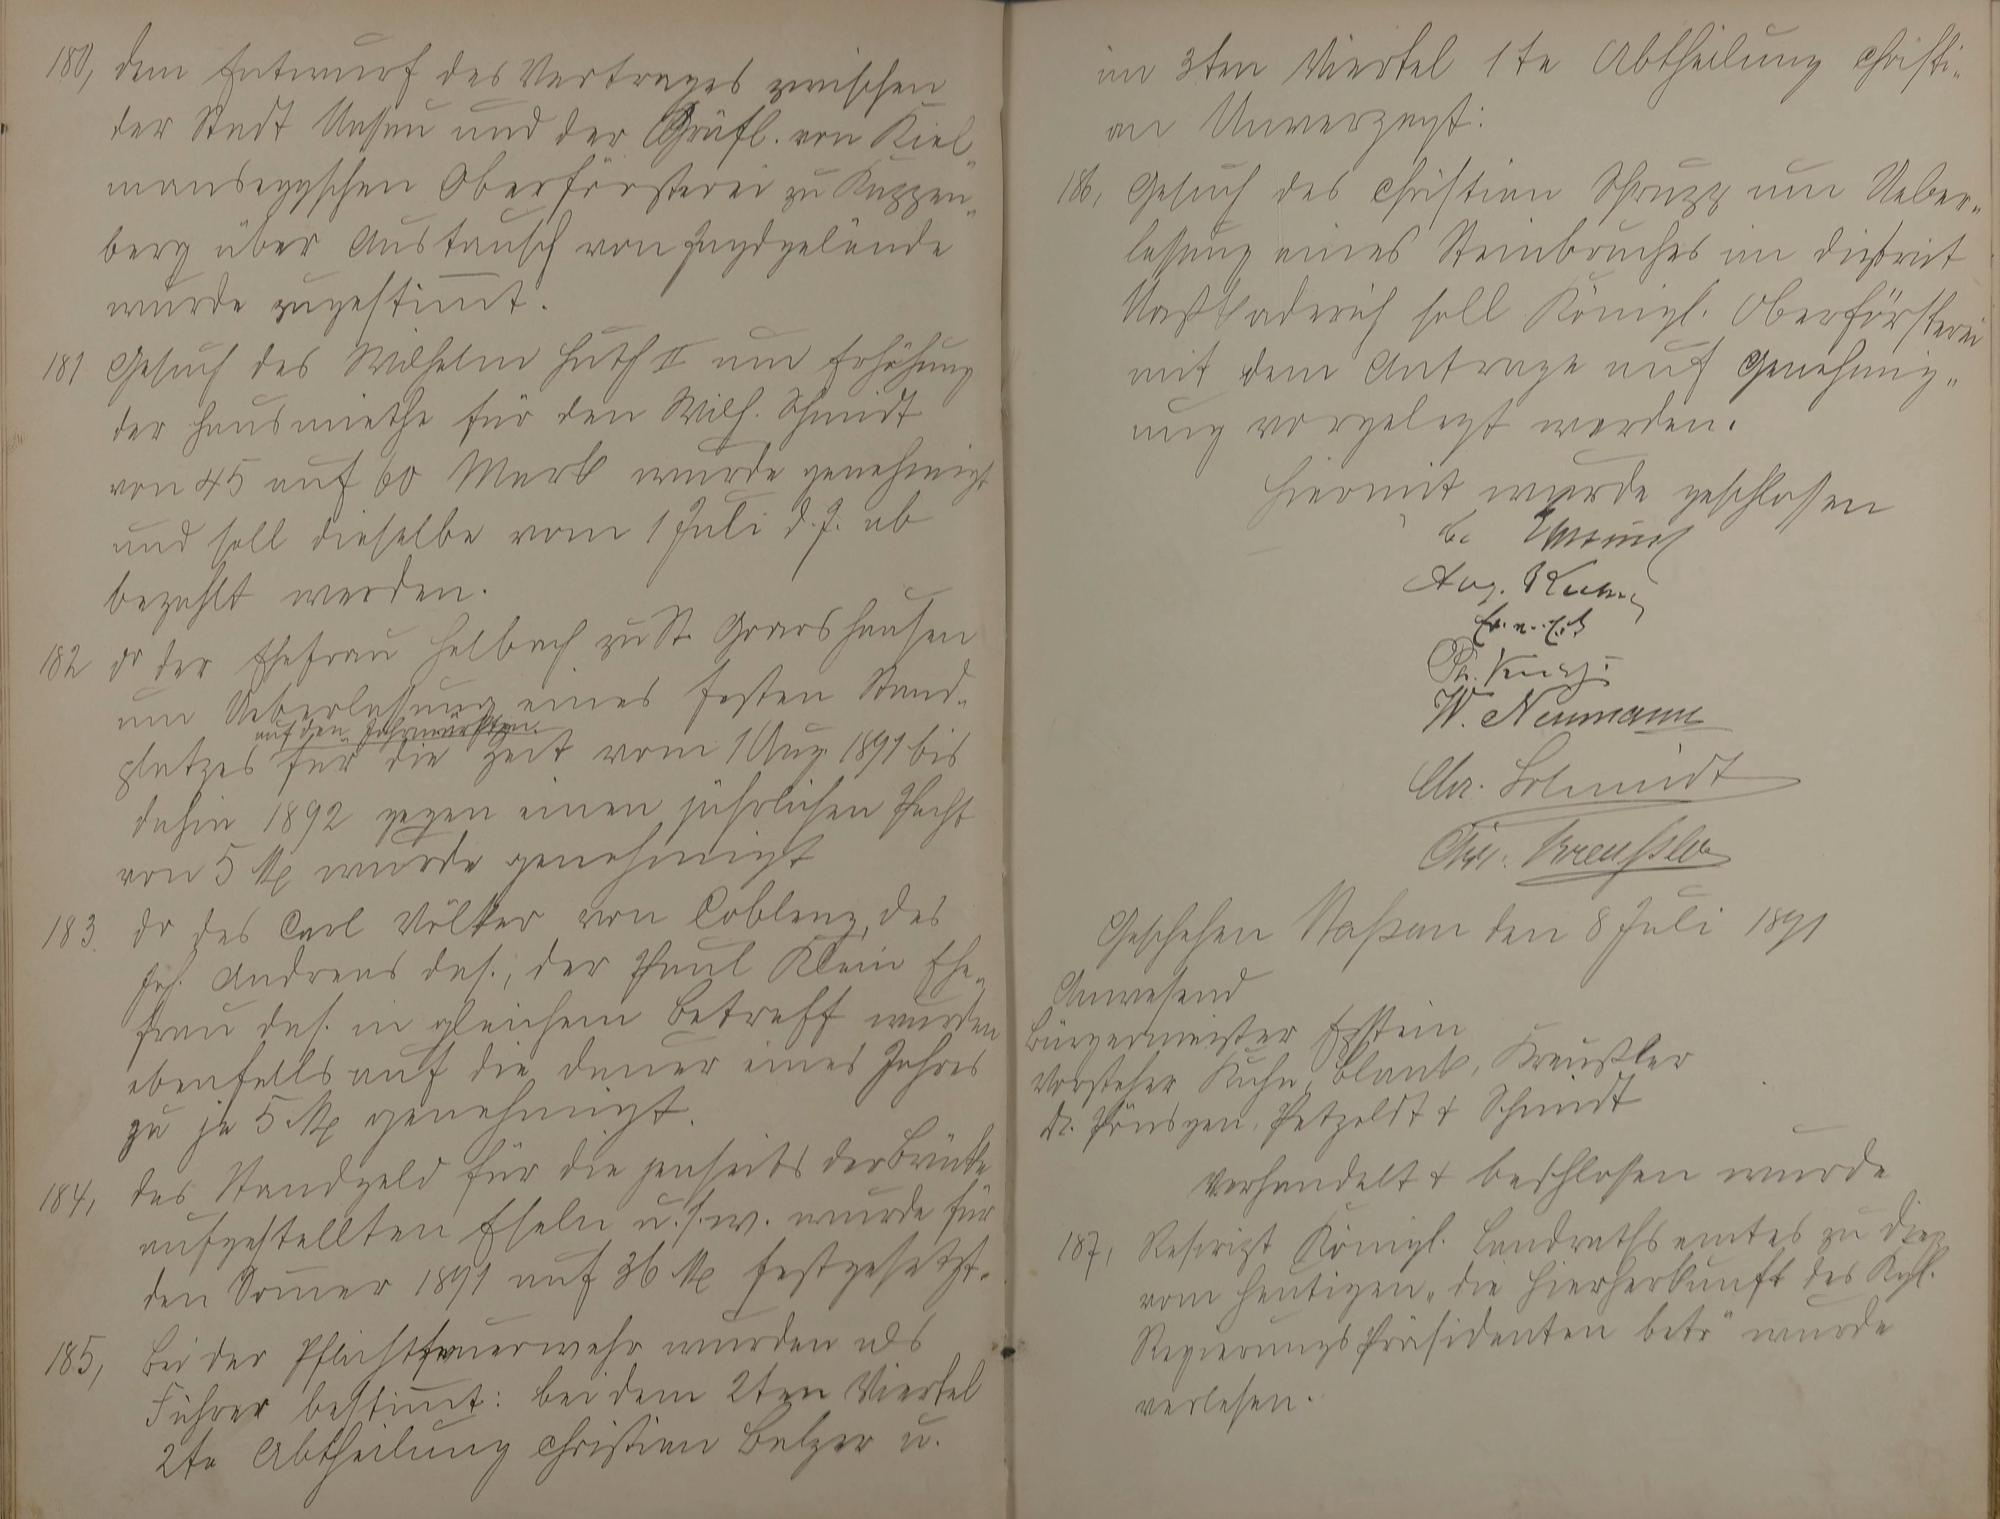 180, dem Entwurf des Vertrages zwischen
der Stadt Nassau und der Gräfl. von Kiel-
mansegg'schen Oberförsterei zu Kappen-
berg über Austausch von Jagdgelände
wurde zugestim̅t.
181 Gesuch des Wilhelm Huth II um Erhöhung
der Hausmiethe für den Wilh. Schmidt
von 45 auf 60 Mark wurde genehmigt
und soll dieselbe vom 1 Juli d. J. ab
bezahlt werden.
182 do der Ehefrau Helbach zu St. Goarshausen
um Ueberlassung eines festen Stand-
auf den Jahrmärkten
platzes für die Zeit vom 1 Aug 1891 bis
dahin 1892 gegen einen jährlichen Pacht
von 5 M wurde genehmigt
183. do des Carl Völker von Coblenz, des
Joh. Andreas das., der Paul Klein Ehe-
frau das. in gleichem Betreff wurden
ebenfalls auf die Dauer eines Jahres
zu je 5 M genehmigt.
184, das Standgeld für die jenseits der Brücke
aufgestellten Eseln u. s. w. wurde für
den Som̅er 1891 auf 36 M festgesetzt.
185, Bei der Pflichtfeuerwehr wurden als
Führer bestim̅t: bei dem 2ten Viertel
2te Abtheilung Christian Balzer u.
im 3ten Viertel 1te Abtheilung Christi-
an Unverzagt.
186, Gesuch des Christian Strupp um Ueber-
lassung eines Steinbruches im District
soll Königl. Oberförsterei
mit dem Antrage auf Genehmig-
ung vorgelegt werden.
Hiermit wurde geschlossen
Aug. Kuhn
W. Neumann
Chr. Schmidt
Chr. Kreußler
Geschehen Naßau den 8 Juli 1891
Anwesend
Bürgermeister
Vorsteher Kuhn, Blank, Kreußler
Dr. Pönsgen, Petzoldt & Schmidt
Verhandelt & beschlossen wurde
187, Rescript Königl. Landrathsamtes zu Diez
vom Heutigen „die Hierherkunft des Kgl.
Regierungs Präsidenten betr" wurde
verlesen.